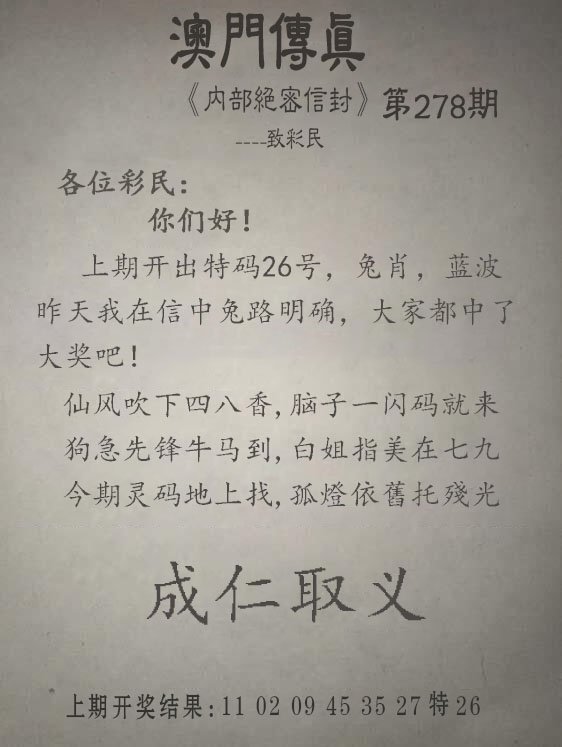 澳門傳真
《内部絕密信封》第278期
----致彩民
各位彩民：
你们好！
上期开出特码26号，兔肖，蓝波
昨天我在信中兔路明确，大家都中了
大奖吧！
仙风吹下四八香,脑子一闪码就来
狗急先锋牛马到,白姐指美在七九
今期灵码地上找,孤燈依舊托殘光
成仁取义
上期开奖结果:11 02 09 45 35 27特26